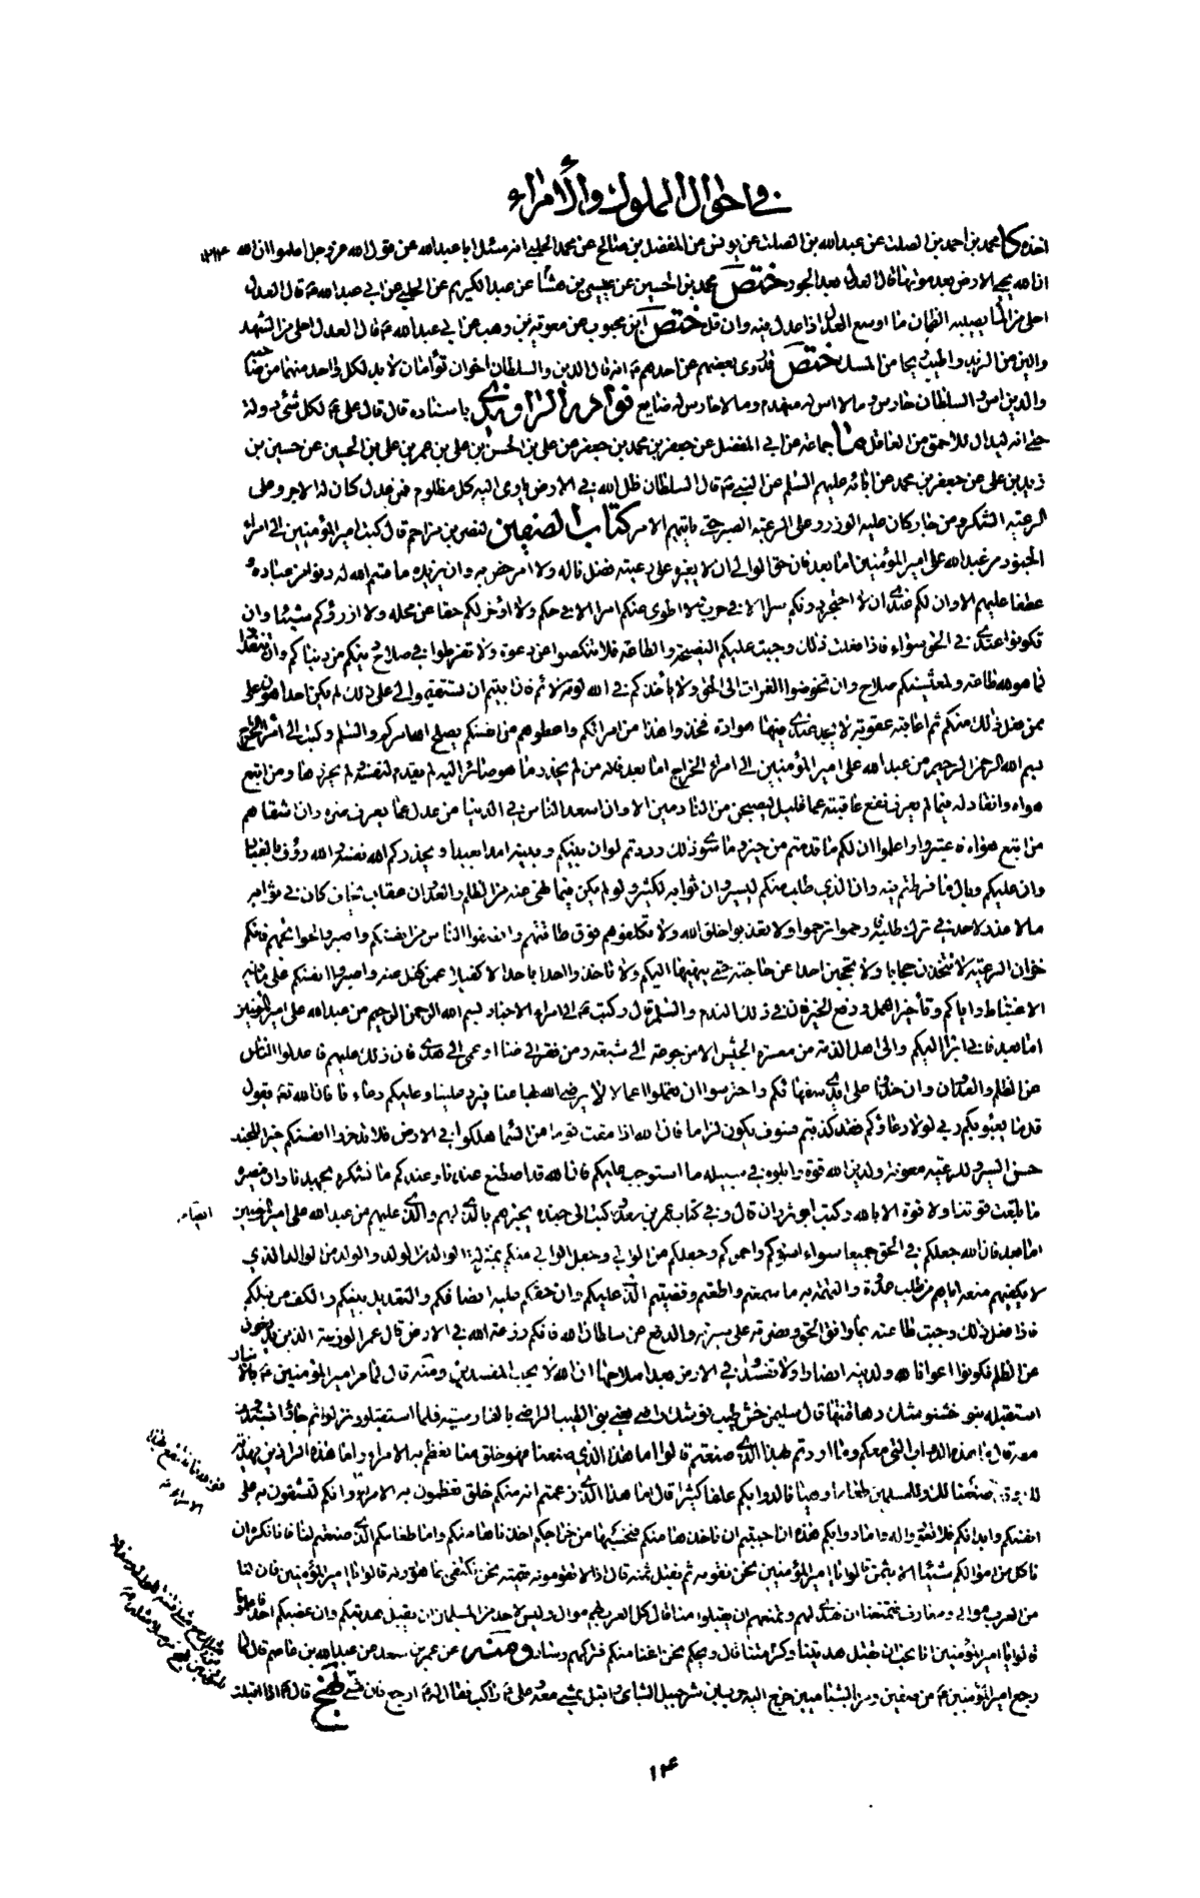 في احوال الملوك والأمراء
محمد بن احمد بن الصلت عن عبدالله بن الصلت عن يونس عن المفضل بن صالح عن محمد الحلبي انه سئل ابا عبدالله عن قول الله عز وجل اعلموا ان الله
ان الله يحي الارض بعد موتها قال العدل بعد الجور ختص محمد بن الحسين عن عيسى بن هشام عن عبد الكريم عن الحلبي عن ابي عبدالله ع قال العدل
احلى من الماء يصيبه الظمآن ما اوسع العدل اذا عدل فيه وان قل ختص ابن محبوب عن معوية بن وهب عن ابي عبدالله ع قال العدل احلى من الشهد
والين من الزبد واطيب ريحا من المسك ختص روى بعضهم عن احدهم ع انه قال الدين والسلطان اخوان توأمان لا بد لكل واحد منهما من صاحبه
والدين اس والسلطان حارس وما لا اس له منهدم وما لا حارس له ضايع نوادر الراوندي باسناده قال قال علي ع لكل شئ دولة
حتى انه ليدال للاحمق من العاقل ما جماعة عن ابي المفضل عن جعفر بن محمد بن جعفر عن علي بن الحسن بن علي بن عمر بن علي بن الحسين عن حسين بن
زيد بن علي عن جعفر بن محمد عن ابائه عليهم السلم عن النبي ص قال السلطان ظل الله في الارض ياوي اليه كل مظلوم فمن عدل كان له الاجر وعلى
الرعية الشكر ومن جار كان عليه الوزر وعلى الرعية الصبر حتى ياتيهم الامر كتاب الصفين لنصر بن مزاحم قال كتب امير المؤمنين الى امراء
الجنود من عبدالله علي امير المؤمنين اما بعد فان حق الوالي ان لا يغيره على رعيته فضل ناله ولا امر خص به وان يزيده ما قسم الله له دنوا من عباده
عطفا عليهم الا وان لكم عندي ان لا احتجز دونكم سرا الا في حرب ولا اطوي عنكم امرا الا في حكم ولا اؤخر لكم حقا عن محله ولا ازرؤكم شيئا وان
تكونوا عندي في الحق سواء فاذا فعلت ذلك وجبت عليكم النصيحة والطاعة فلا تنكصوا عن دعوة ولا تفرطوا في صلاح دينكم من دنياكم وان تنفذوا
لما هو لله طاعة ولمعيشتكم صلاح وان تخوضوا الغمرات الى الحق ولا يأخذكم في الله لومة لائم فان ابيتم ان تستقيموا لي على ذلك لم يكن احد اهون علي
ممن فعل ذلك منكم ثم اعاقبه عقوبة لا يجد عندي فيها هوادة فخذوا هذا من امرائكم واعطوهم من انفسكم يصلح الله امركم والسلم وكتب الى امراء الخراج
بسم الله الرحمن الرحيم من عبدالله علي امير المؤمنين الى امراء الخراج اما بعد فانه من لم يحذر ما هو صائر اليه لم يقدم لنفسه ولم يحرزها ومن اتبع
هواه وانقاد له فيما لم يعرف نفع عاقبته عما قليل ليصبحن من النادمين الا وان اسعد الناس في الدنيا من عدل عما يعرف ضره وان اشقاهم
من اتبع هواه فاعتبروا واعلموا ان لكم ما قدمتم من خير وما سوى ذلك وددتم لو ان بينكم وبينه امدا بعيدا ويحذركم الله نفسه والله رؤف بالعباد
وان عليكم وبال ما فرطتم فيه وان الذي طلب منكم ليسير وان ثوابه لكثير ولو لم يكن فيما نهى عنه من الظلم والعدوان عقاب يخاف كان في ثوابه
ما لا عذر لاحد في ترك طلبه فارحموا ترحموا ولا تعذبوا خلق الله ولا تكلفوهم فوق طاقتهم وانصفوا الناس من انفسكم واصبروا لحوائجهم فانكم
خزان الرعية لا تتخذن حجابا ولا تحجبن احدا عن حاجته حتى ينهيها اليكم ولا تاخذوا احدا باحد الا كفيلا عمن كفل عنه واصبروا انفسكم على ما فيه
الاغتباط واياكم وتأخير العمل ودفع الخير فان في ذلك الندم والسلم قال وكتب ع الى امراء الاجناد بسم الله الرحمن الرحيم من عبدالله علي امير المؤمنين
اما بعد فاني ابرأ اليكم والى اهل الذمة من معرة الجيش الا من جوعة الى شبعة ومن فقر الى غنا او عمى الى هدى فان ذلك عليهم فاعدلوا الناس
عن الظلم والعدوان وان خذوا على ايدي سفهائكم واحترسوا ان تعملوا اعمالا لا يرضى الله بها عنا فيرد علينا وعليكم دعاءنا فان الله تع يقول
قل ما يعبؤ بكم ربي لولا دعاؤكم فقد كذبتم فسوف يكون لزاما فان الله اذا مقت قوما من السماء هلكوا في الارض فلا تدخروا انفسكم خيرا ولا الجند
حسن السيرة ولا الرعية معونة ولا دين الله قوة وابلوه في سبيله ما استوجب عليكم فان الله قد اصطنع عندنا وعندكم ما نشكره بجهدنا وان ننصره
ما بلغت قوتنا ولا قوة الا بالله وكتب ابو ثروان قال وفي كتاب عمر بن سعد وكتب الى جنده يخبرهم بالذي لهم والذي عليهم من عبدالله علي امير المؤمنين
اما بعد فان الله جعلكم في الحق جميعا سواء اسودكم واحمركم وجعلكم من الوالي وجعل الوالي منكم بمنزلة الوالد من الولد والولد من الوالد الذي
لا يكفيهم منعه اياهم من طلب عدوه والتهمة به ما سمعتم واطعتم وقضيتم الذي عليكم وان حقكم عليه انصافكم والتعديل بينكم والكف عن فيئكم
فاذا فعل ذلك وجبت طاعته بما وافق الحق ونصرته على سيرته والدفع عن سلطان الله فانكم وزعة الله في الارض قال عمر الوزعة الذين يدفعون
عن الظلم فكونوا اعوانا لله ولدينه انصارا ولا تفسدوا في الارض بعد اصلاحها ان الله لا يحب المفسدين ومنه قال لما مر امير المؤمنين ع بالانبار
استقبله بنو خشنوشك دهاقنتها قال سليمن خش طيب نوشك راضي يعني بني الطيب الراضي بالفارسية فلما استقبلوه نزلوا ثم جاؤا يشتدون
معه قال ما هذه الدواب التي معكم وما اردتم بهذا الذي صنعتم قالوا اما هذا الذي صنعنا فهو خلق منا نعظم به الامراء واما هذه البراذين فهدية
لك وقد صنعنا لك وللمسلمين طعاما وهيانا لدوابكم علفا كثيرا قال اما هذا الذي زعمتم انه منكم خلق تعظمون به الامراء وانكم لتشقون به على
انفسكم وابدانكم فلا تعودوا له واما دوابكم هذه ان احببتم ان ناخذها منكم فنحسبها من خراجكم اخذناها منكم واما طعامكم الذي صنعتم لنا فانا نكره ان
ناكل من اموالكم شيئا الا بثمن قالوا يا امير المؤمنين نحن نقومه ثم نقبل ثمنه قال اذا لا تقومونه قيمته نحن نكتفي بما هو دونه قالوا يا امير المؤمنين فان لنا
من العرب موالي ومعارف فتمنعنا ان نهدي لهم وتمنعهم ان يقبلوا منا قال كل العرب لكم موال وليس لاحد من المسلمين ان يقبل هديتكم وان غصبكم احد فاعلمونا
قالوا يا امير المؤمنين انا نحب ان تقبل هديتنا وكرامتنا قال ويحكم نحن اغنى منكم فتركهم وسار ومنه عن عمر بن سعد عن عبدالله بن عاصم قال لما
رجع امير المؤمنين ع من صفين ومر بالشباميين خرج اليه حرب بن شرحبيل الشبامي واقبل يمشي معه وعلي ع راكب فقال له ارجع فان مشي نهج قال ع اذا اقبلت
١٢٤